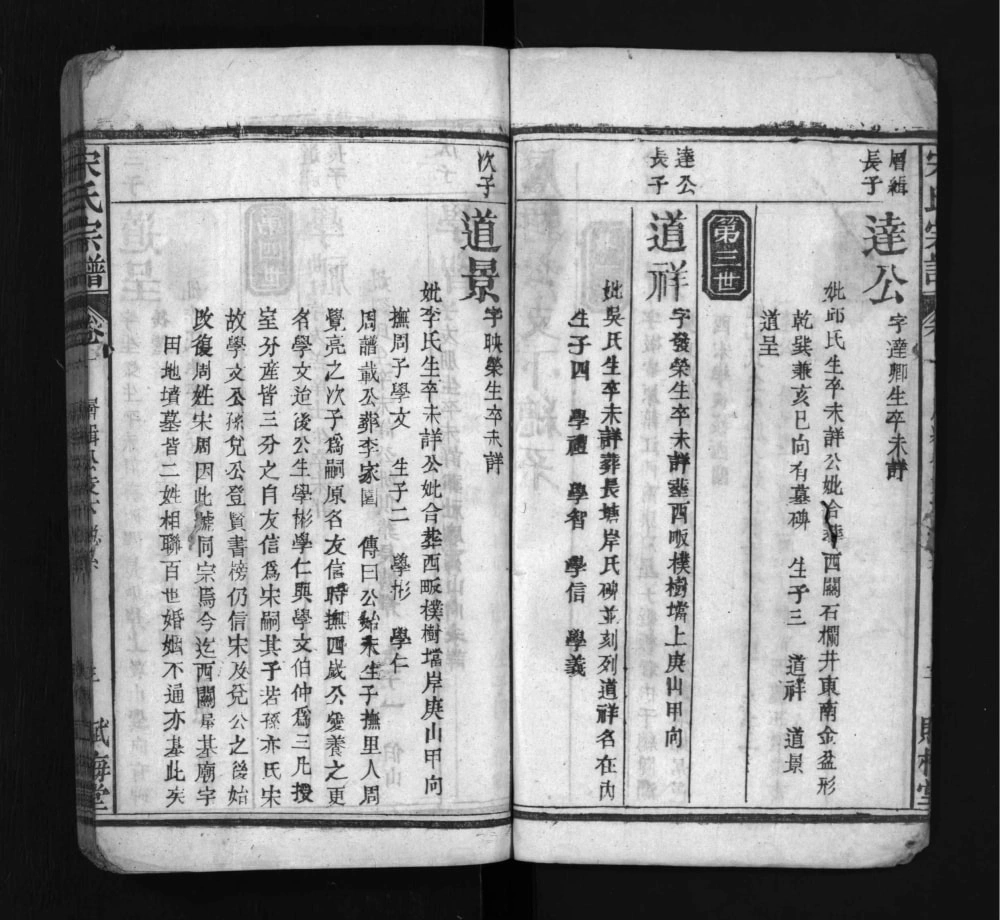 層緝長子
達公
字達卿生卒未詳
妣邱氏生卒未詳公妣合葬西關石欄井東南金盆形
乾巽兼亥巳向有墓碑　生子三　道祥　道景
道呈
第三世
達公長子
道祥
字發榮生卒未詳葬西畈樸樹壋上庚山甲向
妣吳氏生卒未詳葬長塘岸氏碑並刻列道祥名在內
生子四　學禮　學智　學信　學義
次子
道景
字映榮生卒未詳
妣李氏生卒未詳公妣合葬西畈樸樹壋岸庚山甲向
撫周子學文　生子二　學彬　學仁
周譜載公葬李家園　傳曰公始未生子撫里人周
覺亮之次子爲嗣原名友信時撫四歲公愛養之更
名學文迨後公生學彬學仁與學文伯仲爲三凡授
室分產皆三分之自友信爲宋嗣其子若孫亦氏宋
故學文公孫兌公登賢書榜仍信宋及兌公之後始
改復周姓宋周因此號同宗焉今迄西關屋基廟宇
田地墳墓皆二姓相聯百世婚姻不通亦基此矣
宋氏宗譜
賦梅堂